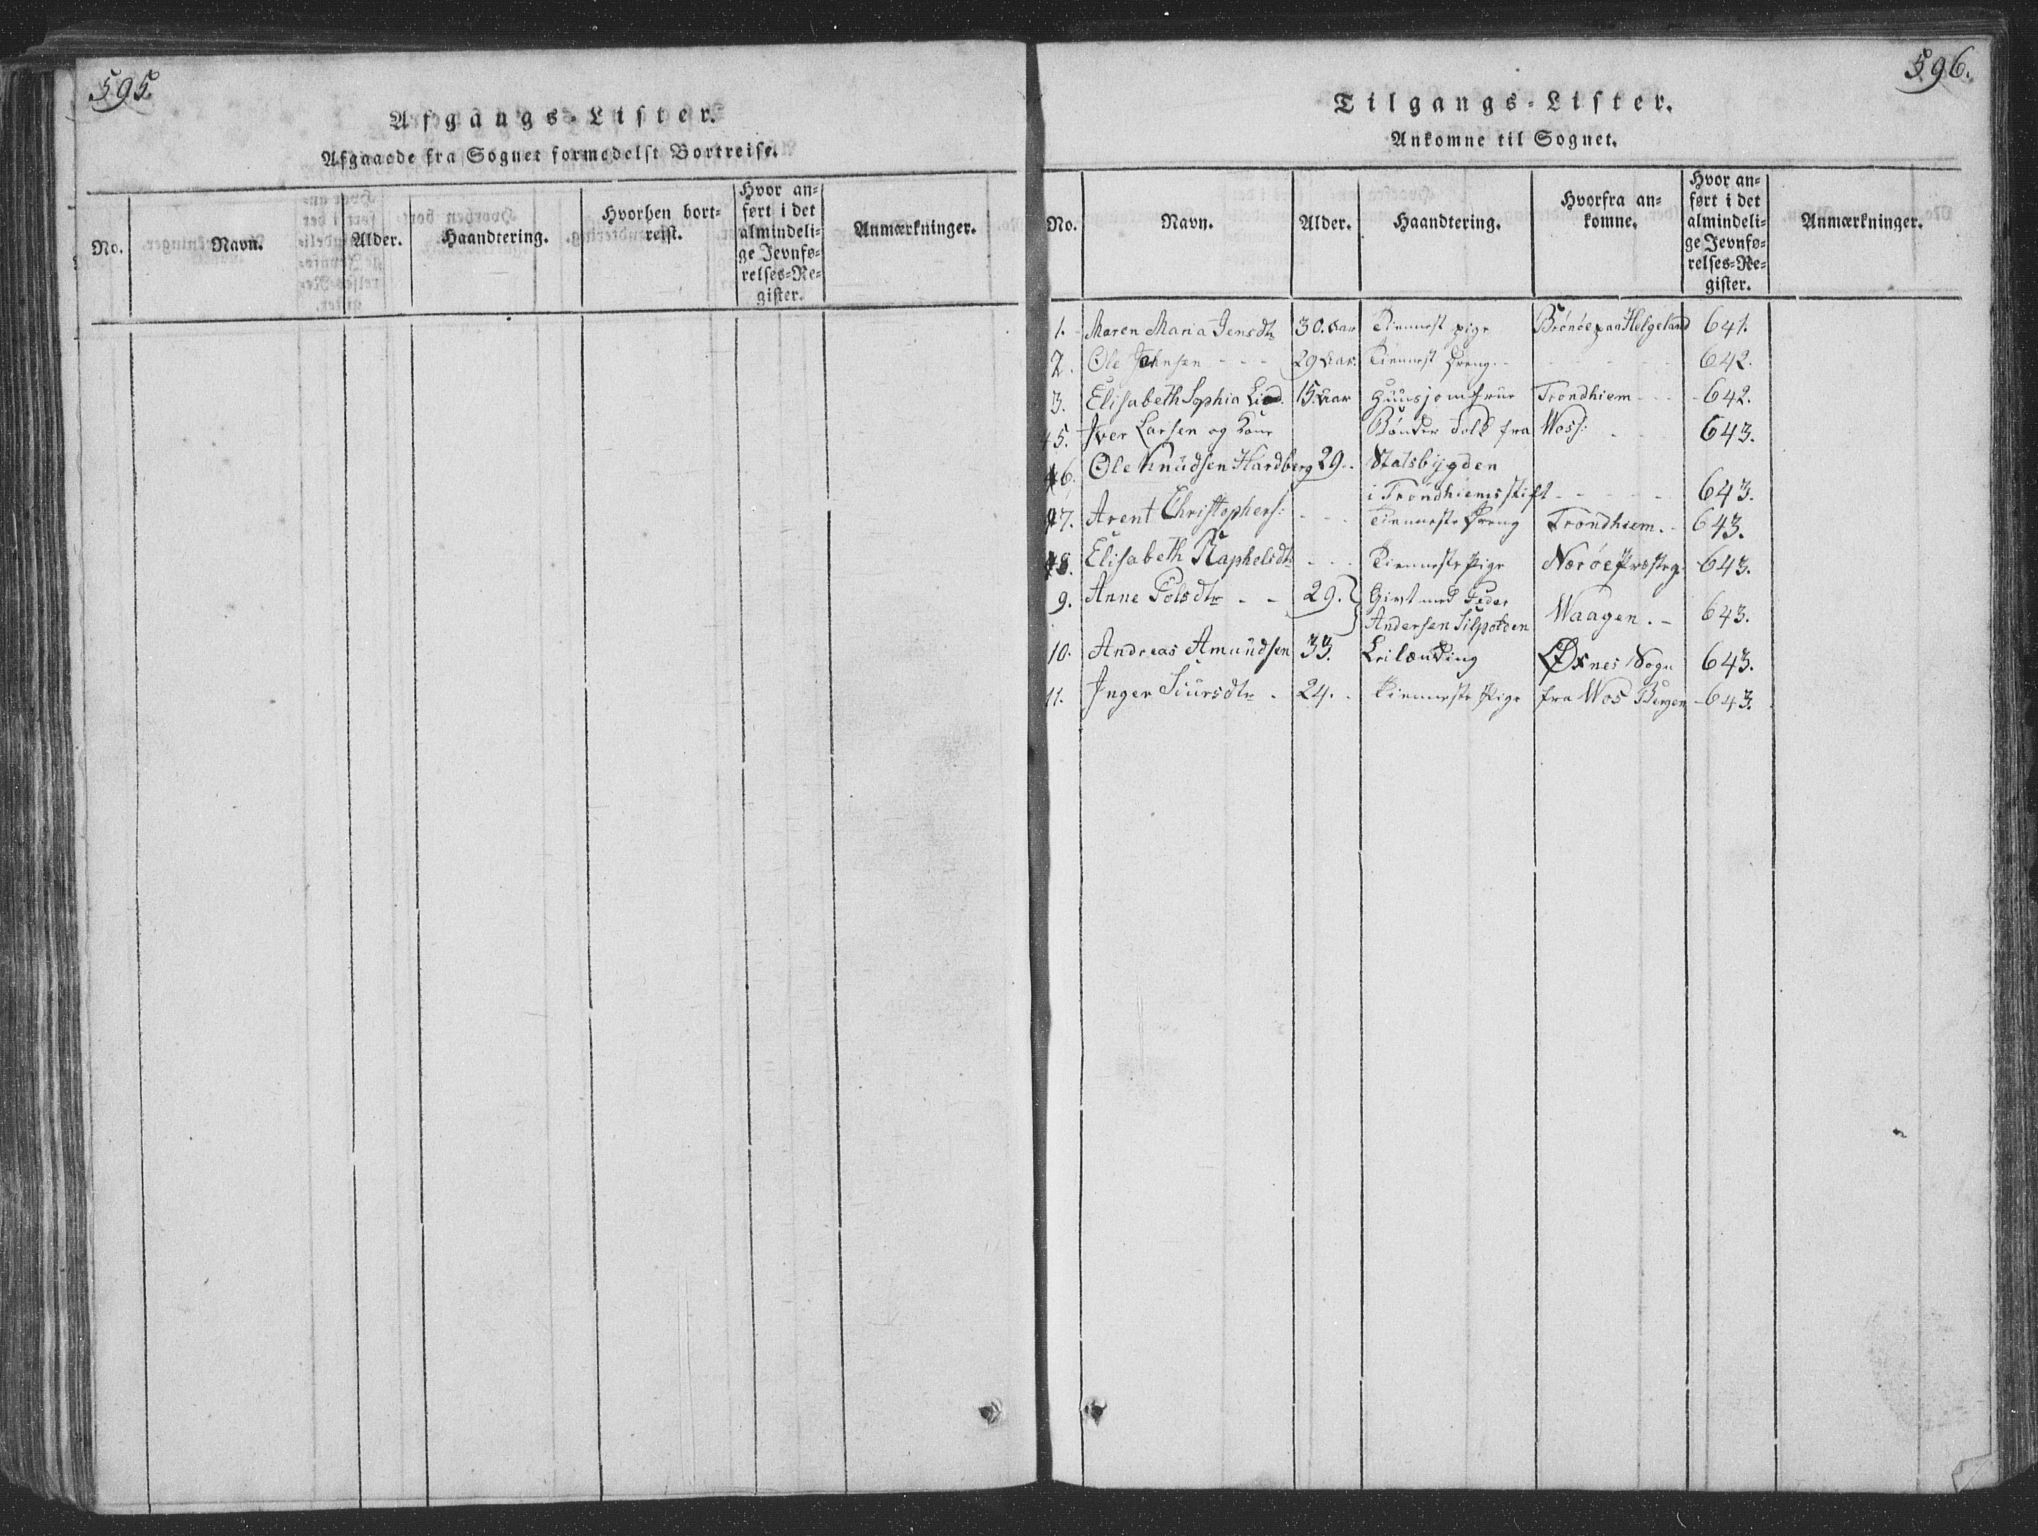 595.
Afgangs-Lister.
Afgaaede fra Sognet formedelst Bortreise.
No.
Navn.
Alder.
Haandtering.
Hvorhen bort-
reist.
Hvor an-
ført i det
almindeli-
ge Jevnfø-
relses-Re-
gister.
Anmærkninger.
596.
Tilgangs-Lister.
Ankomne til Sognet.
No.
Navn.
Alder.
Haandtering.
Hvorfra an-
komne.
Hvor an-
ført i det
almindeli-
ge Jevnfø-
relses-Re-
gister.
Anmærkninger.
1. Maren Maria Jensdtr 30. Aar Tiennest pige Brönöe paa Helgeland 641.
2. Ole Johnsen - - - 29 Aar. Tiennest Dreng - - 642.
3. Elisabeth Sophia Lind. 15. Aar Huusjomfrue Trondhiem - - - 642.
5. Iver Larsen og Kone Bönder Folk fra Woss: - - 643.
6. Ole Knudsen Hardberg 29. - Statsbygden
i Trondhiems stift - - - - 643.
7. Arent Christophers: - - - Tienneste Dreng Trondhiem. - 643.
8. Elisabeth Raphelsdtr - - - Tienneste Pige Næröe Præsteg: 643.
9. Anne Polsdtr - - 29. Givt med Peder
Andersen Waagen. - 643.
10. Andreas Amundsen 33. Leilænding Øxnes Sogn 643.
11. Inger Siursdtr - 24. - Tienneste Pige fra Wos Bergen - 643.